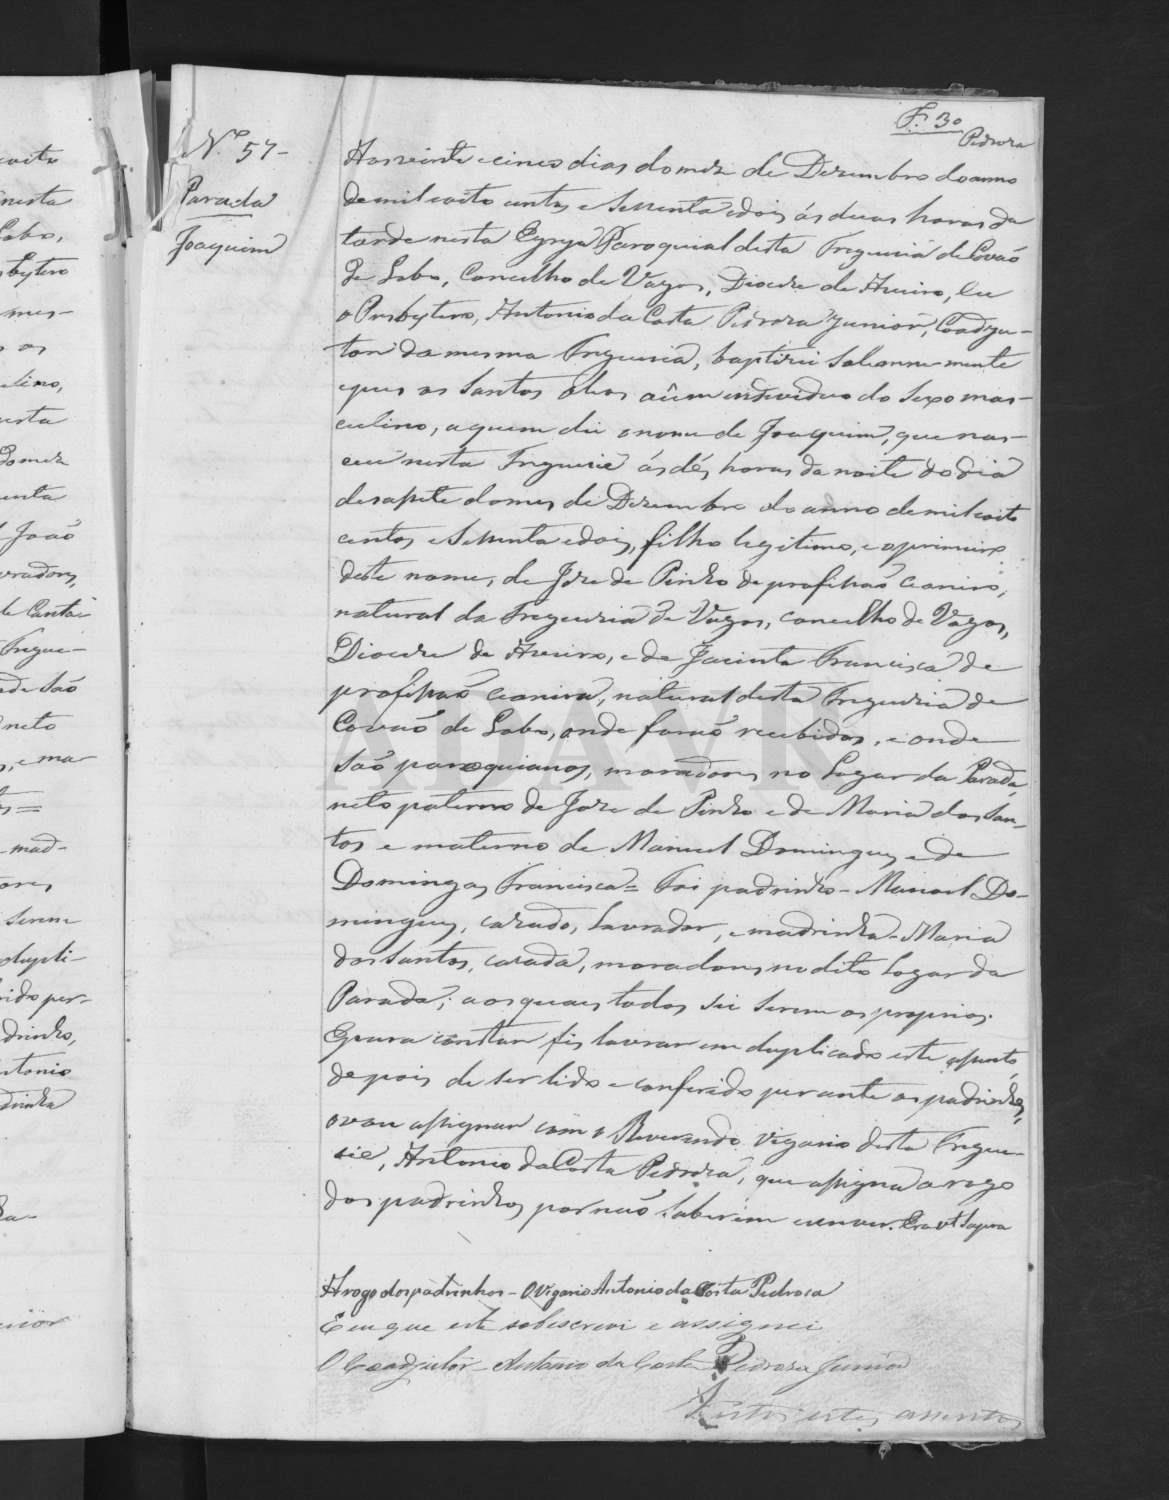 F. 30
Pedroza
N.º 57-
Parada
Joaquim
Aos veinte e cinco dias do mez de Dezembro do anno
de mil e oito centos e Settenta e dois ás duas horas da
tarde nesta Egreja Paroquial desta Freguezia de Covaõ
de Lobo, Concelho de Vagos, Diocese de Aveiro, Eu
o Presbytero, Antonio da Costa Pedroza Junior, Coadju-
tor da mesma Freguezia, baptizei Solemne-mente
e puz os Santos Oleos a ũ individuo do Sexo mas-
culino, a quem dei o nome de Joaquim, que nas-
ceu nesta Freguezia ás dés horas da noite do dia
desasete do mes de Dezembro do anno de mil e oito
centos e Settenta e dois, filho legitimo, e o primeiro
deste nome, de Joze de Pinho de profissaõ
natural da Freguezia de Vagos, concelho de Vagos,
Diocese de Aveiro, e de Jacinta Francisca de
profissaõ natural desta Freguezia de
Covaõ de Lobo, onde foraõ recebidos, e onde
Saõ paroquianos, moradores no Lugar da Parada,
neto paterno de Joze de Pinho e de Maria dos San-
tos e materno de Manuel Domingues e de
Domingas Francisca = Foi padrinho - Manoel Do-
mingues, cazado, lavrador, e madrinha - Maria
dos Santos, cazada, moradores no dito Logar da
Parada, aos quaes todos Sei Serem os proprios.
E para constar fis lavrar em duplicado este assento
depois de ser lido e conferido perante os padrinhos,
o vou assignar com o Reverendo Vigario desta Fregue-
sie, Antonio da Costa Pedroza, que assigna a rogo
dos padrinhos por naõ Saberem escrever. Era ut Supra
A rogo dos padrinhos - O Vigario Antonio da Costa Pedrosa
E eu que este sobescrevi e assignei
O Coadjutor - Antonio da Costa Pedroza Junior
estes assentos
ADAVR